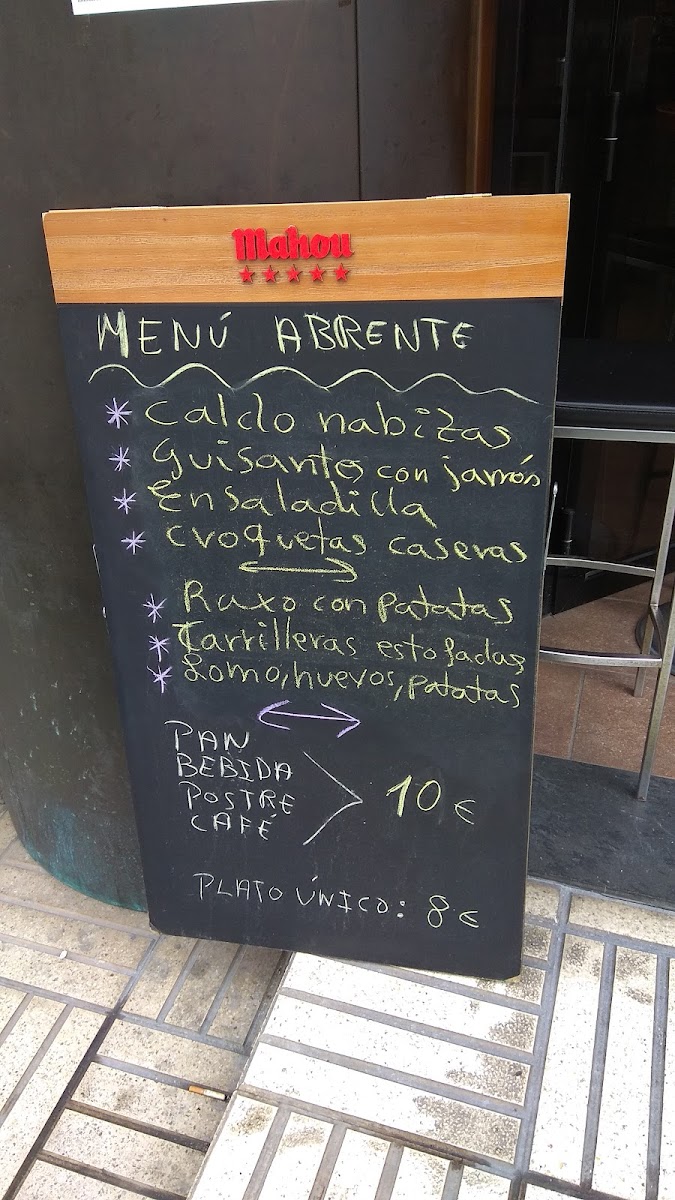 Mahou
MENÚ ABRENTE
* Caldo nabizas
* Guisantes con jamón
* Ensaladilla
* Croquetas caseras
* Raxo con patatas
* Carrilleras estofadas
* Lomo, huevos, patatas
PAN
BEBIDA
POSTRE
CAFÉ
10 €
PLATO ÚNICO: 8 €